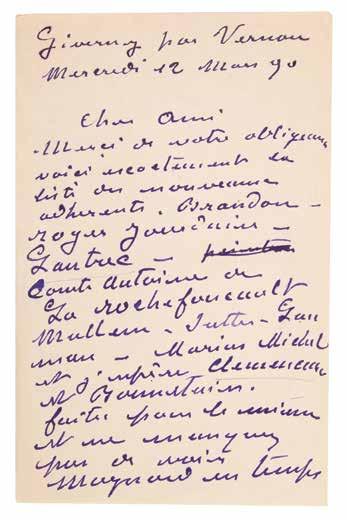 Giverny par Vernon
Mercredi 12 Mars 90
Cher Ami
Merci de votre obligeance
voici exactement la
liste des nouveaux
adherents. Brandon -
roger Jourdain -
Lautrec -
Comte Antoine de
La rochefoucault
Mallem -
man - Marius Michel
et j'espère Clemenceau
et
faites pour le mieux
et ne manquez
pas de voir
en temps